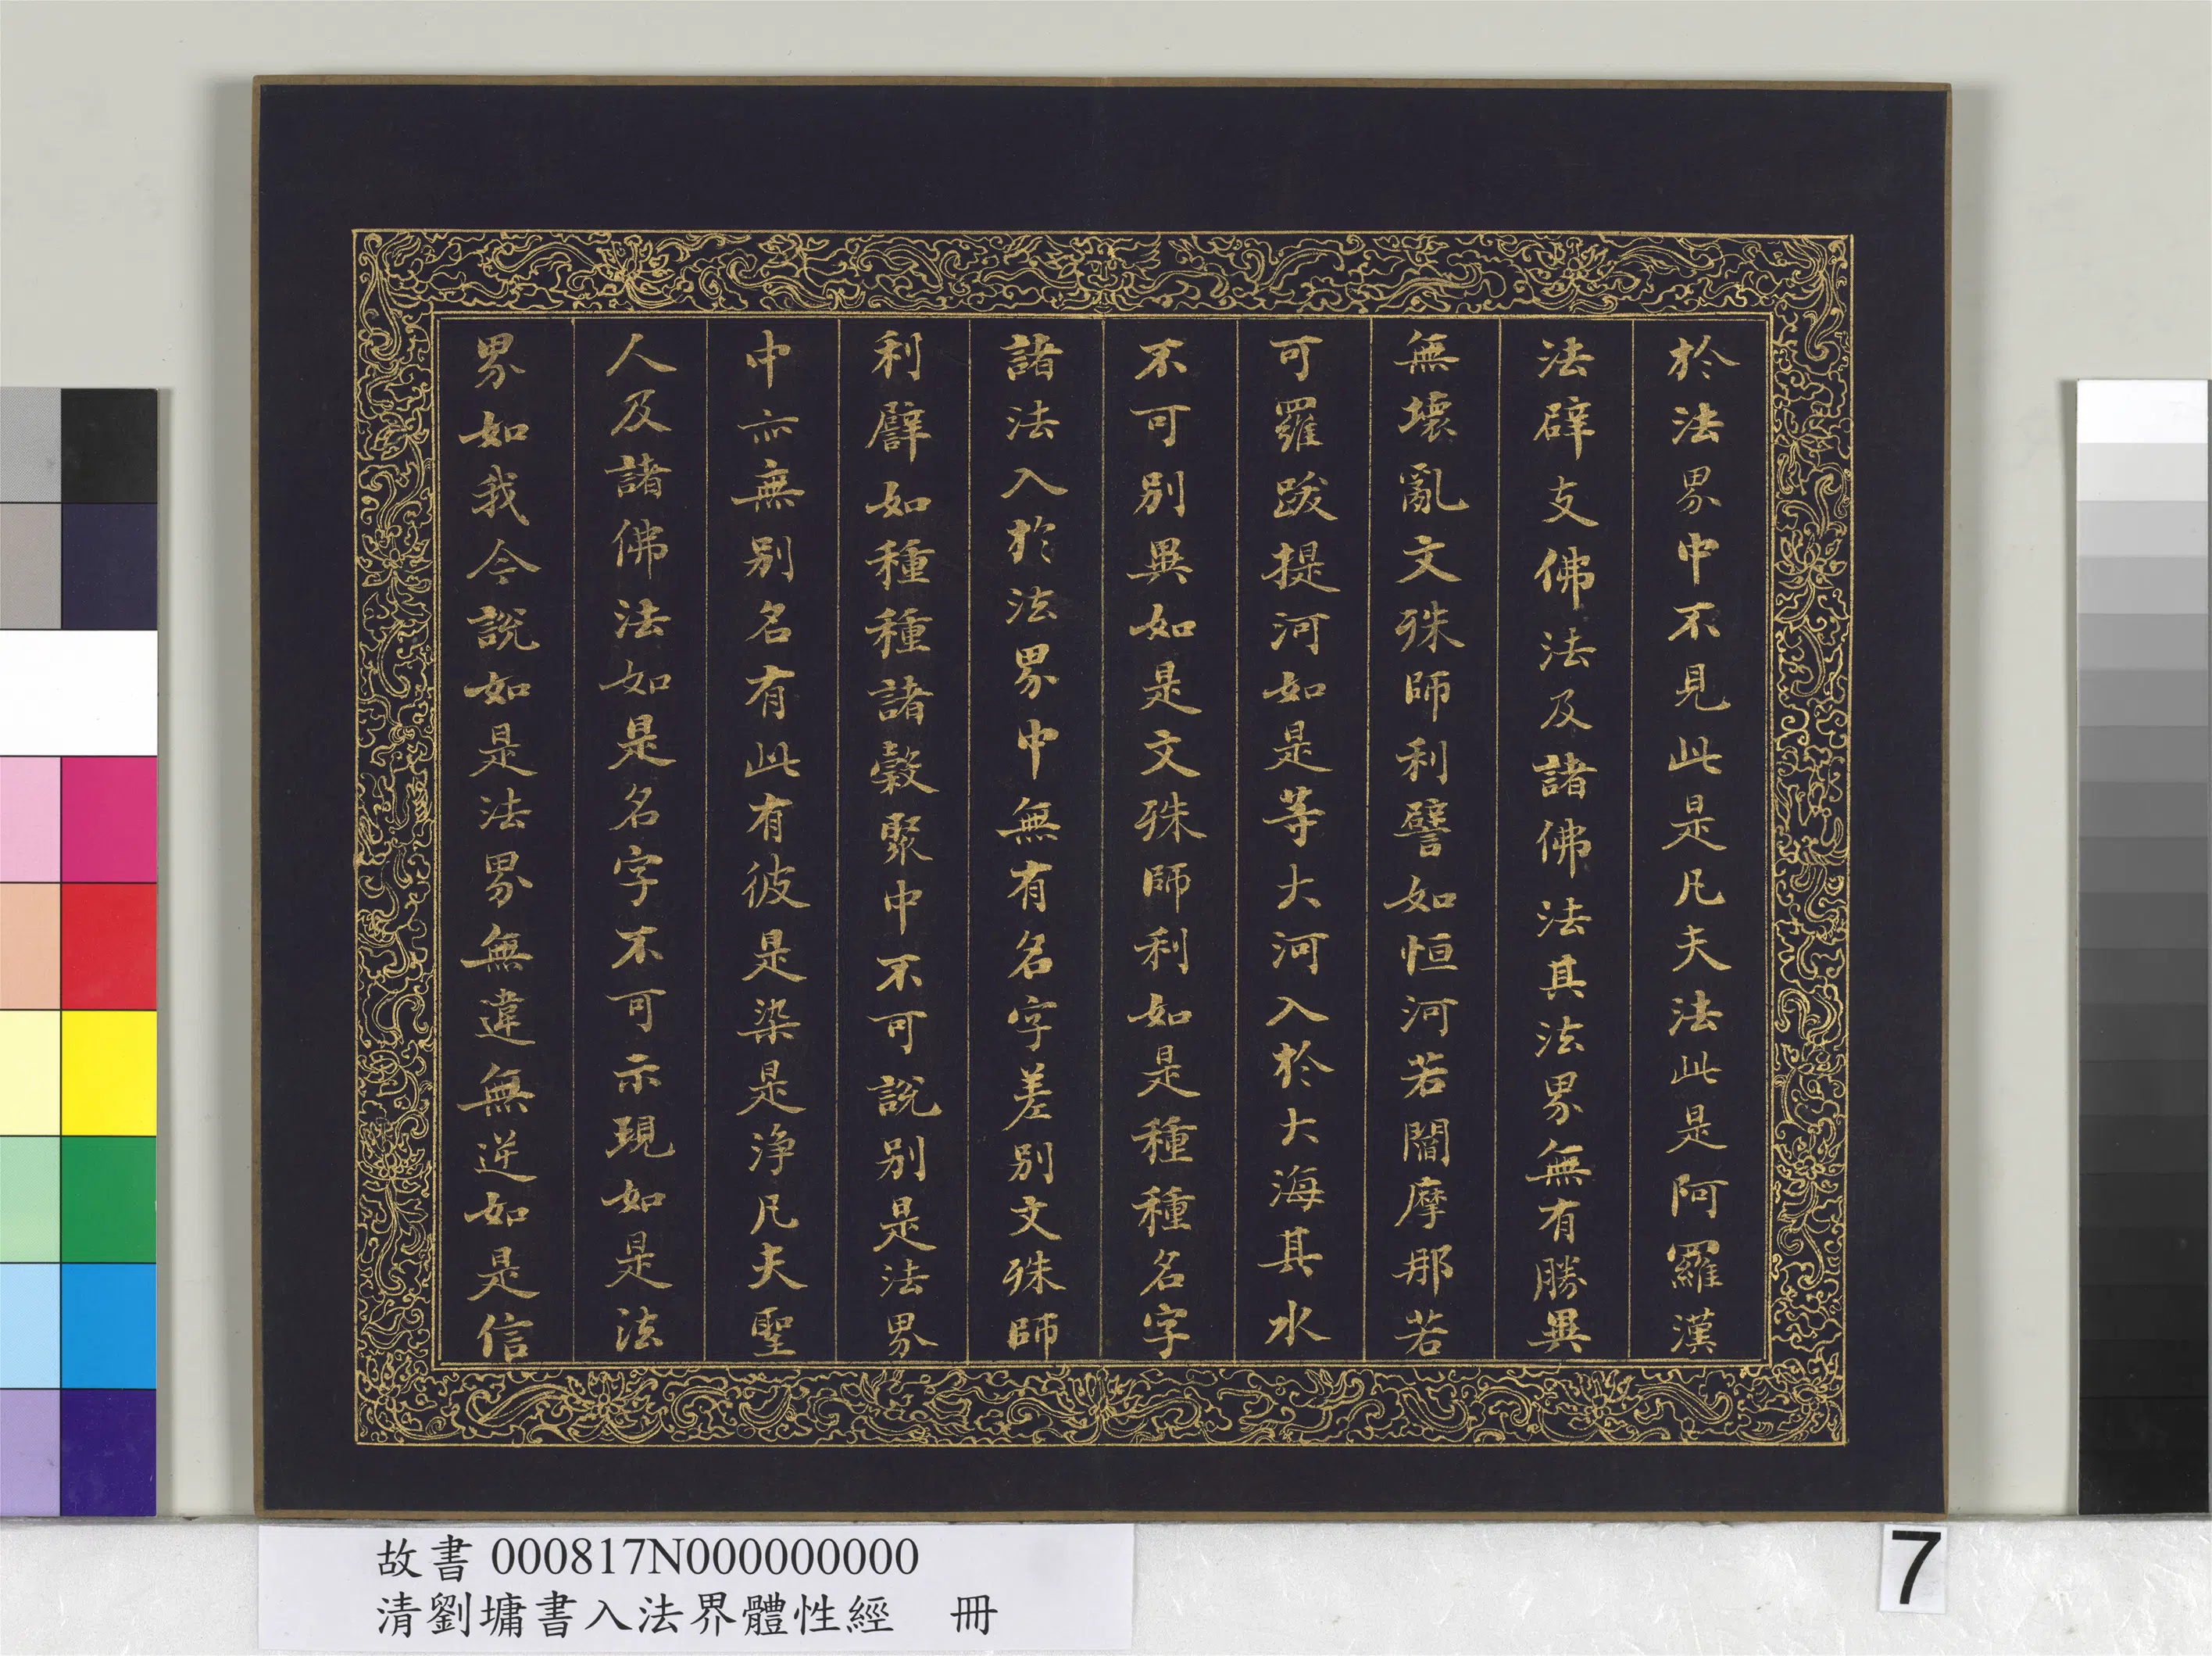 於法界中不見此是凡夫法此是阿羅漢
法辟支佛法及諸佛法其法界無有勝異
無壞亂文殊師利譬如恒河若閻摩那若
可羅跋提河如是等大河入於大海其水
不可別異如是文殊師利如是種種名字
諸法入於法界中無有名字差別文殊師
利譬如種種諸穀聚中不可說別是法界
中亦無別名有此有彼是染是淨凡夫聖
人及諸佛法如是名字不可示現如是法
界如我今說如是法界無違無逆如是信
故書 000817N000000000
清劉墉書入法界體性經 冊
7